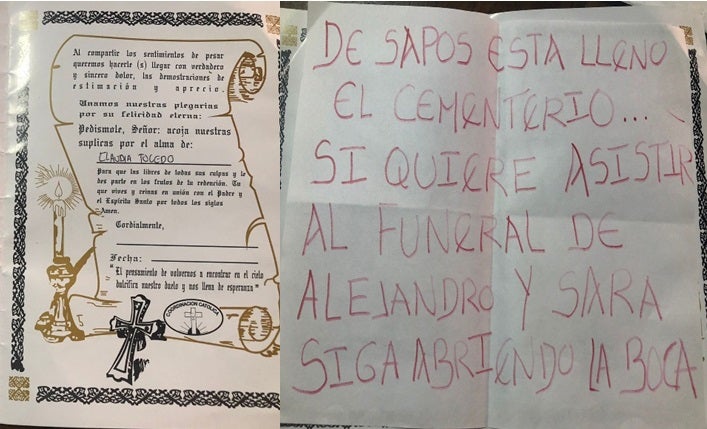 Al compartir los sentimientos de pesar
queremos hacerle (s) llegar con verdadero
y sincero dolor, las demostraciones de
estimación y aprecio.
Unamos nuestras plegarias
por su felicidad eterna:
Pedismole, Señor: acoja nuestras
suplicas por el alma de:
CLAUDIA TOLEDO
Para que las libres de todas sus culpas y le
des parte en los frutos de tu redención. Tu
que vives y reinas en unión con el Padre y
el Espíritu Santo por todos los siglos
Amen.
Cordialmente,
Fecha:
"El pensamiento de volvernos a encontrar en el cielo
dulcifica nuestro duelo y nos llena de esperanza"
COORDINACION CATOLICA
DE SAPOS ESTA LLENO
EL CEMENTERIO...
SI QUIERE ASISTIR
AL FUNERAL DE
ALEJANDRO Y SARA
SIGA ABRIENDO LA BOCA